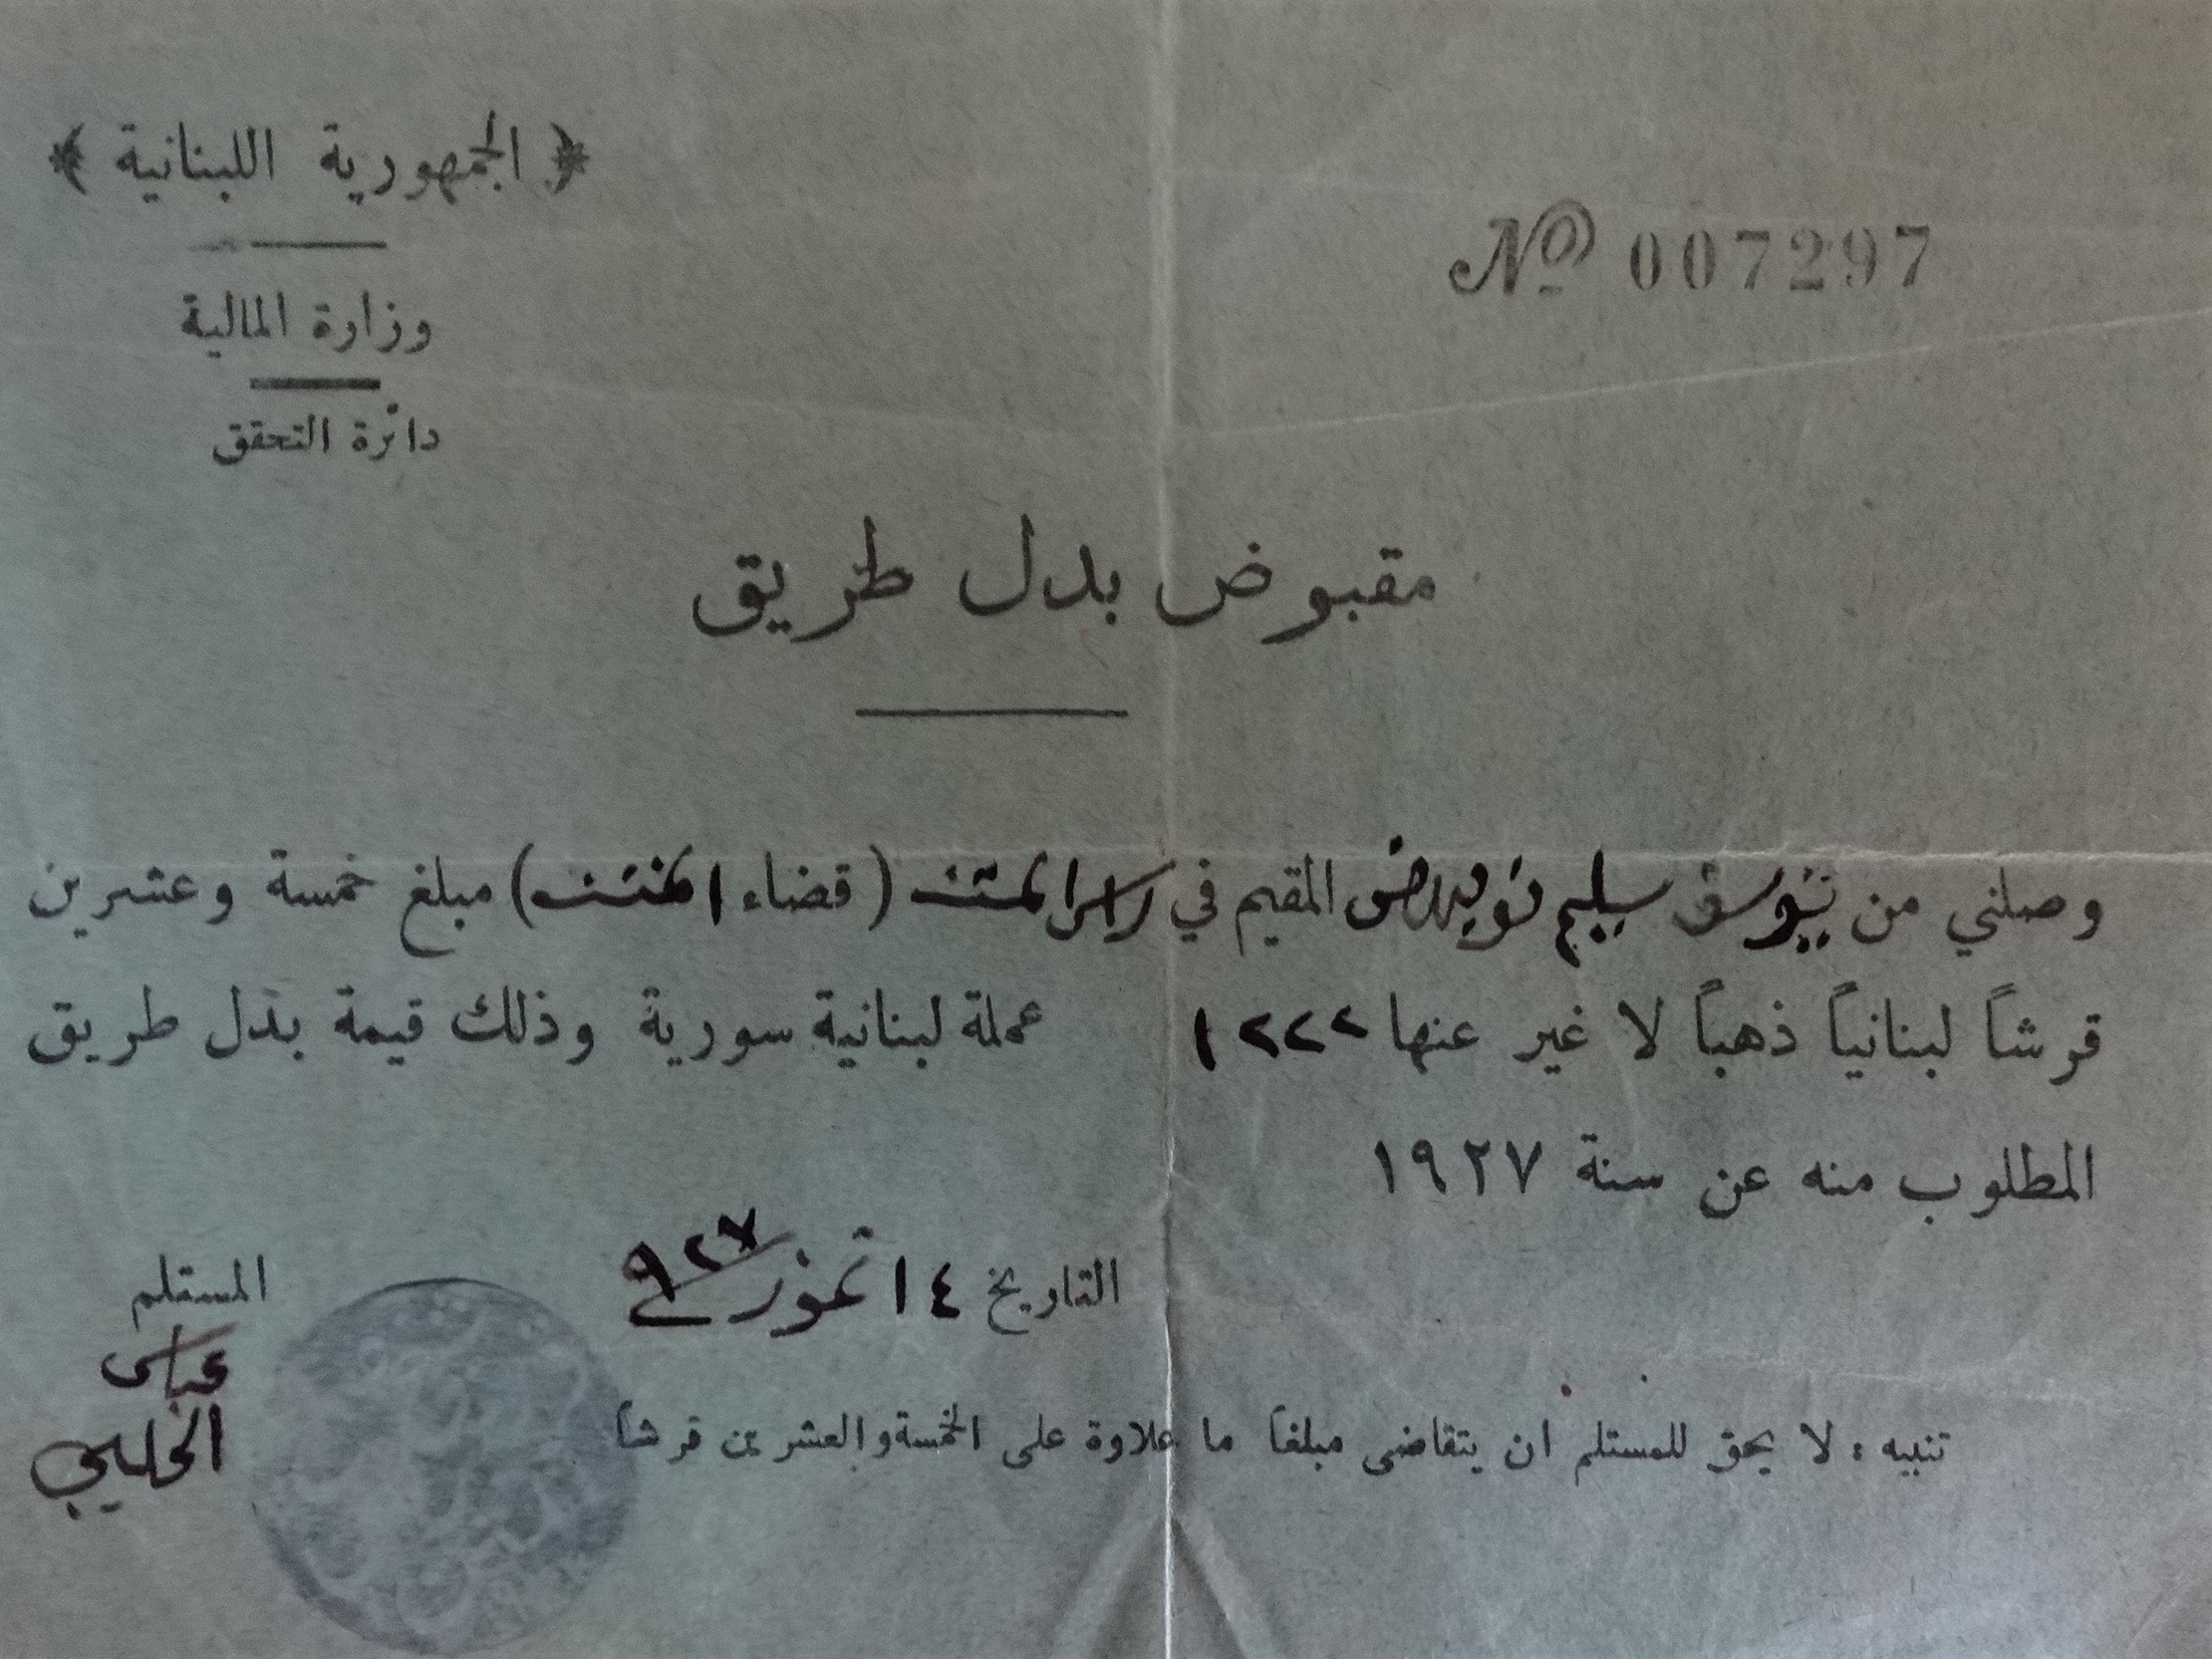 الجمهورية اللبنانية
وزارة المالية
دائرة التحقق
№ 007297
مقبوض بدل طريق
وصلني من يوسف سليم نويهض المقيم في راس المتن (قضاء المتن) مبلغ خمسة وعشرين
قرشاً لبنانياً ذهباً لا غير عنها ١٢٢٢ عملة لبنانية سورية وذلك قيمة بدل طريق
المطلوب منه عن سنة ١٩٢٧
التاريخ ١٤ تموز ٩٢٧
المستلم
عباس
تنبيه : لا يحق للمستلم ان يتقاضى مبلغاً ما علاوة على الخمسة والعشرين قرشاً